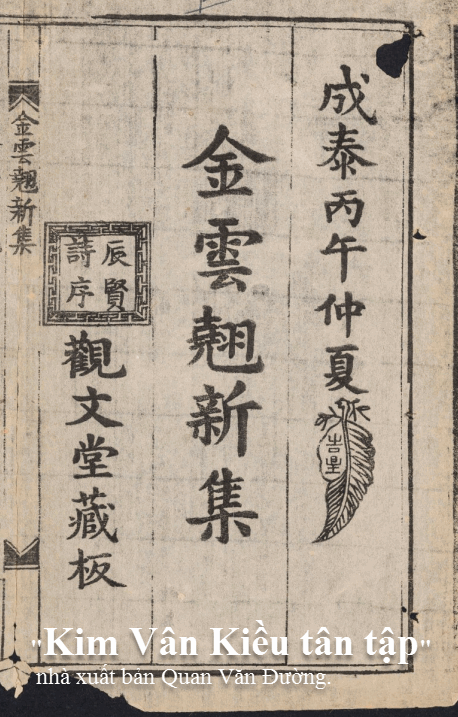 成泰丙午仲夏
金雲翹新集
辰賢
詩序
觀文堂藏板
金雲翹新集
"Kim Vân Kiều tân tập"
nhà xuất bản Quan Văn Đường.